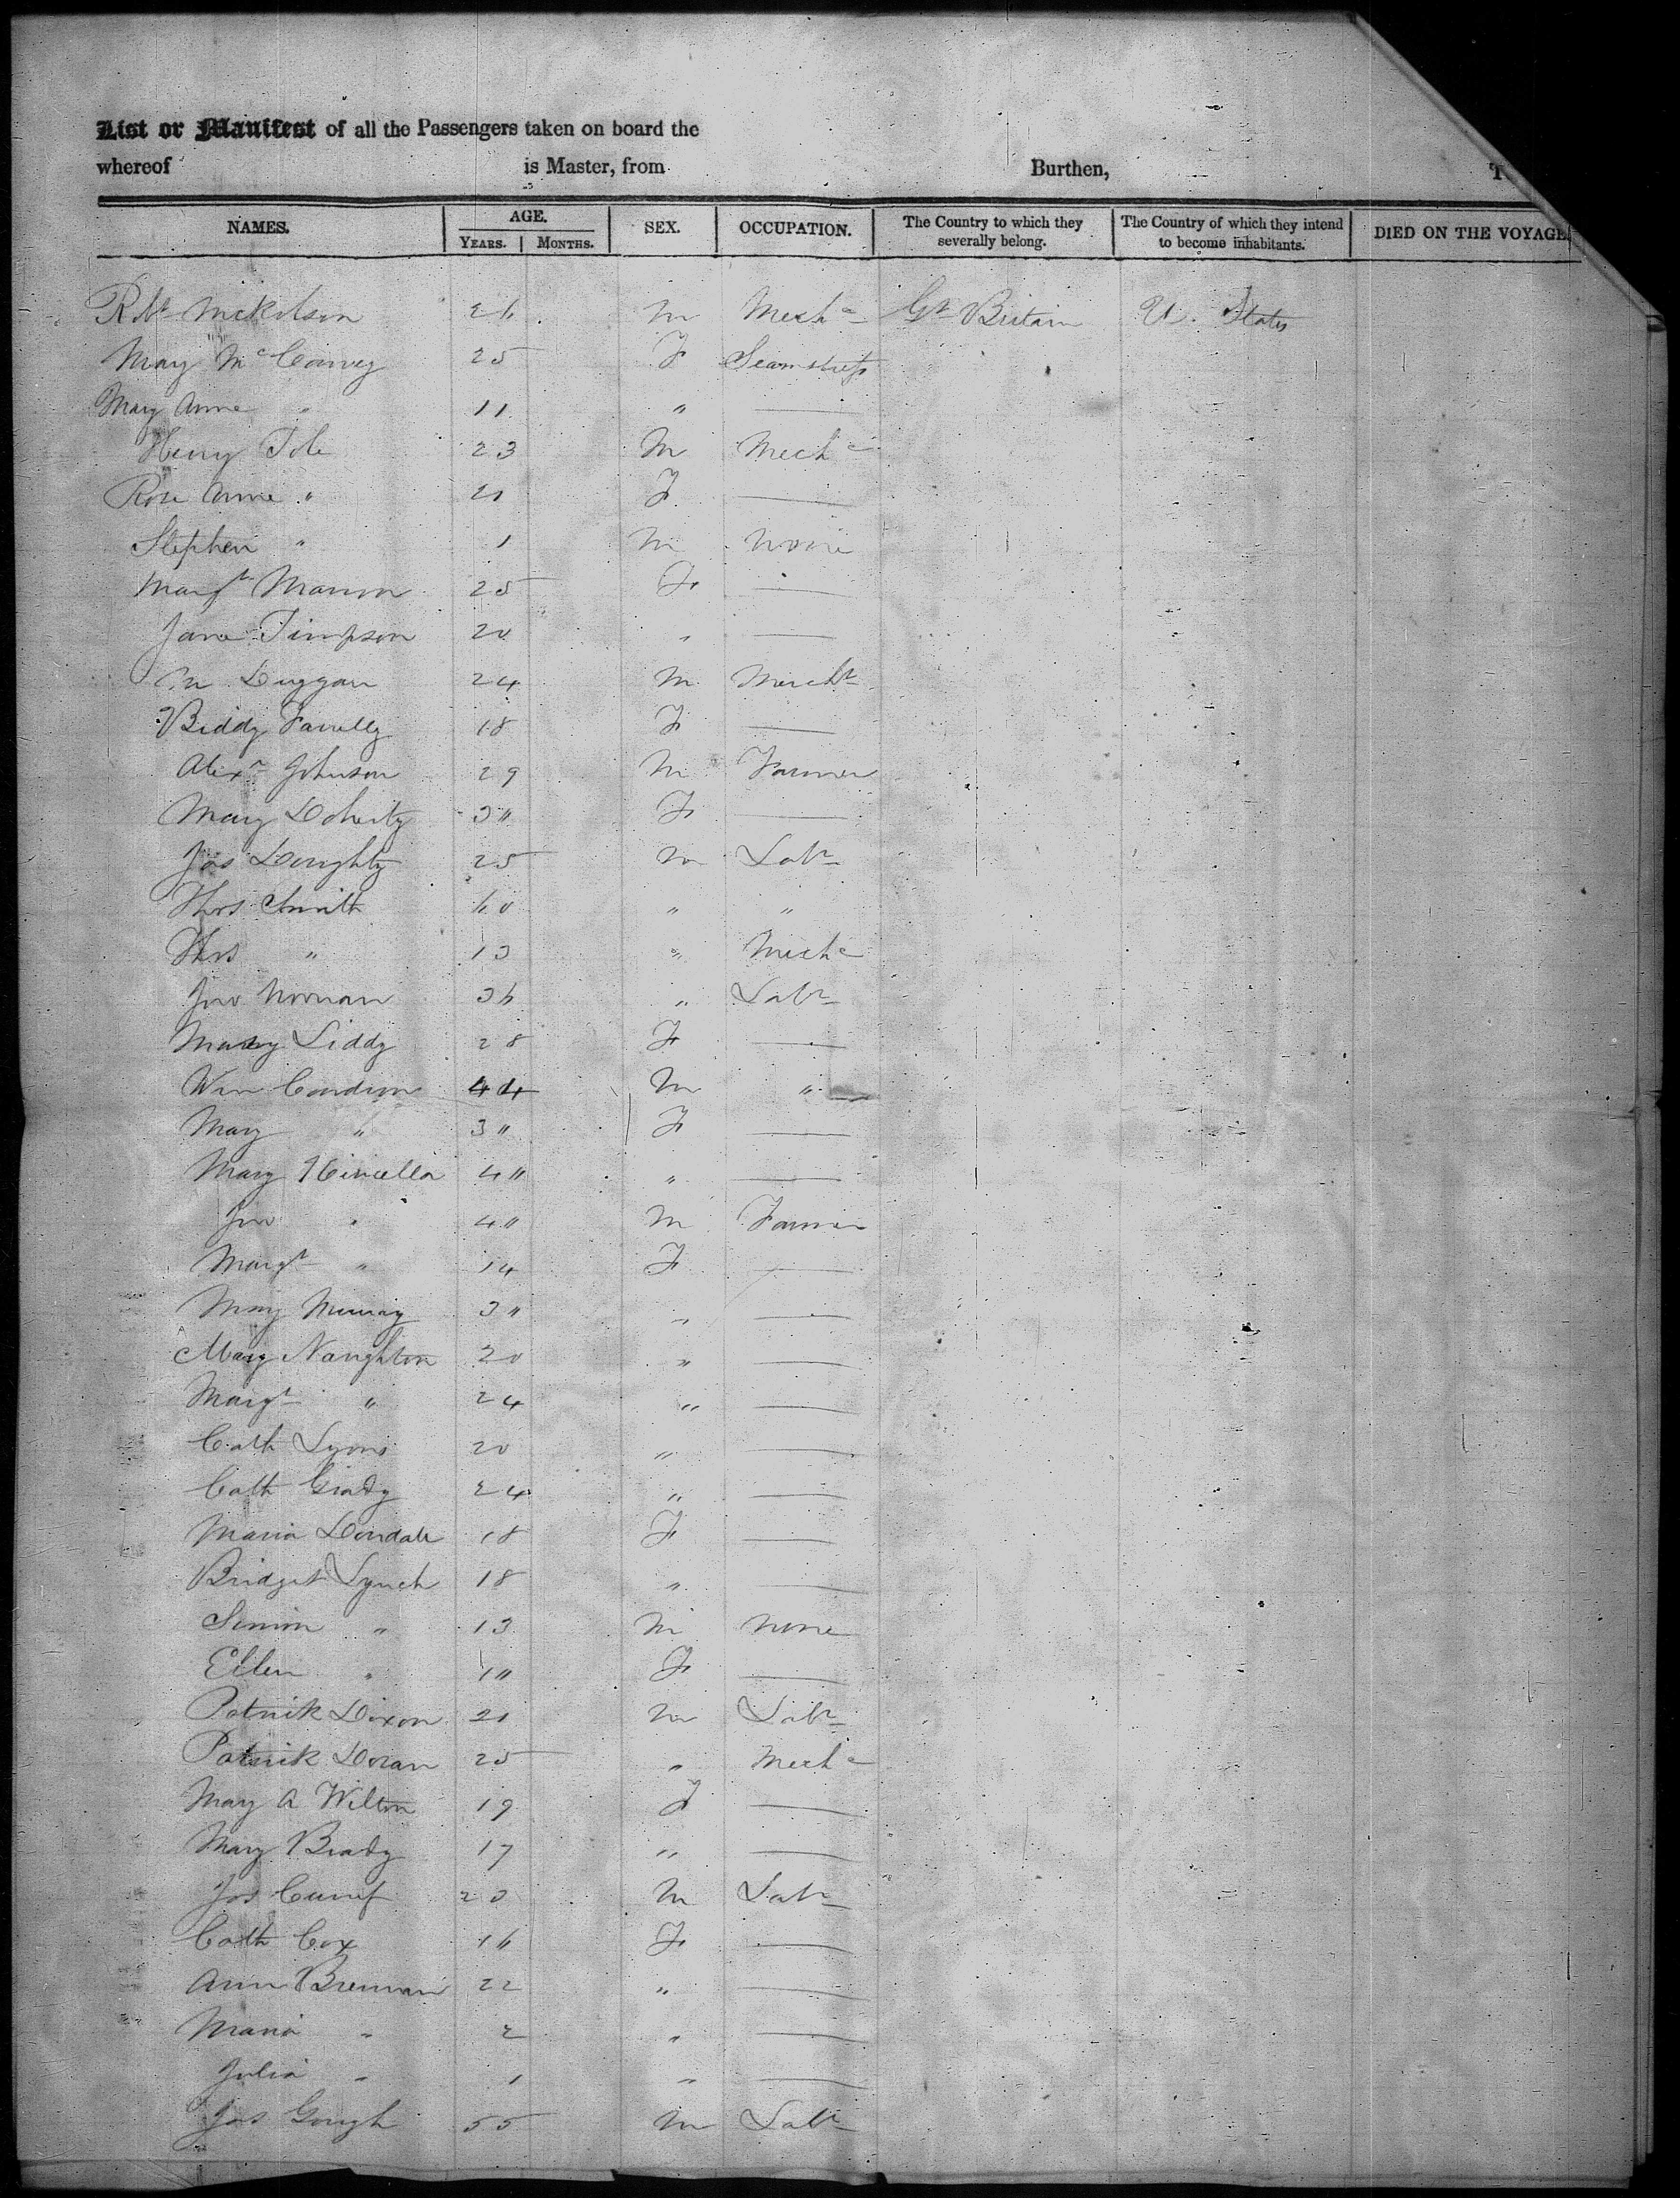 List or Manifest of all the Passengers taken on board the
whereof is Master, from Burthen, T
NAMES. AGE. YEARS. MONTHS. SEX. OCCUPATION. The Country to which they severally belong. The Country of which they intend to become inhabitants. DIED ON THE VOYAGE
Rt Nickolson 26 M Mechc Gt Britain U. States
Mary McCarvey 25 F Seamstress
Mary Anne " 11 " —
Henry Tole 23 M Mechc
Rose Anne " 21 F —
Stephen " 1 M None
Margt Mannon 25 F —
Jane Timpson 20 " —
Duggan 24 M Mercht
Biddy Farrelly 18 F —
Alexr Johnson 29 M Farmer
Mary Doherty 3" F —
Jas Doughty 25 M Labr
Thos Smith 60 " "
Thos " 13 " Mechc
Jno Noonan 36 " Labr
Mary Liddy 28 F —
Wm Condron 44 M "
Mary " 3" F —
Mary Kincella 4" " —
Jno " 4" M Farmer
Margt " 14 F —
Mary Murray 3" " —
Mary Naughton 20 " —
Margt " 24 " —
Cath Lyons 20 " —
Cath Grady 24 " —
Maria Dondale 18 F —
Bridget Lynch 18 " —
Simon " 13 M None
Ellen " 1" F —
Patrick Dixon 21 M Labr
Patrick Doran 25 " Mechc
Mary A Wilton 19 F —
Mary Brady 17 " —
Jos 23 M Labr
Cath Cox 16 F —
Ann Brennan 22 " —
Maria " 2 " —
Julia " 1 " —
Jas Gough 55 M Labr